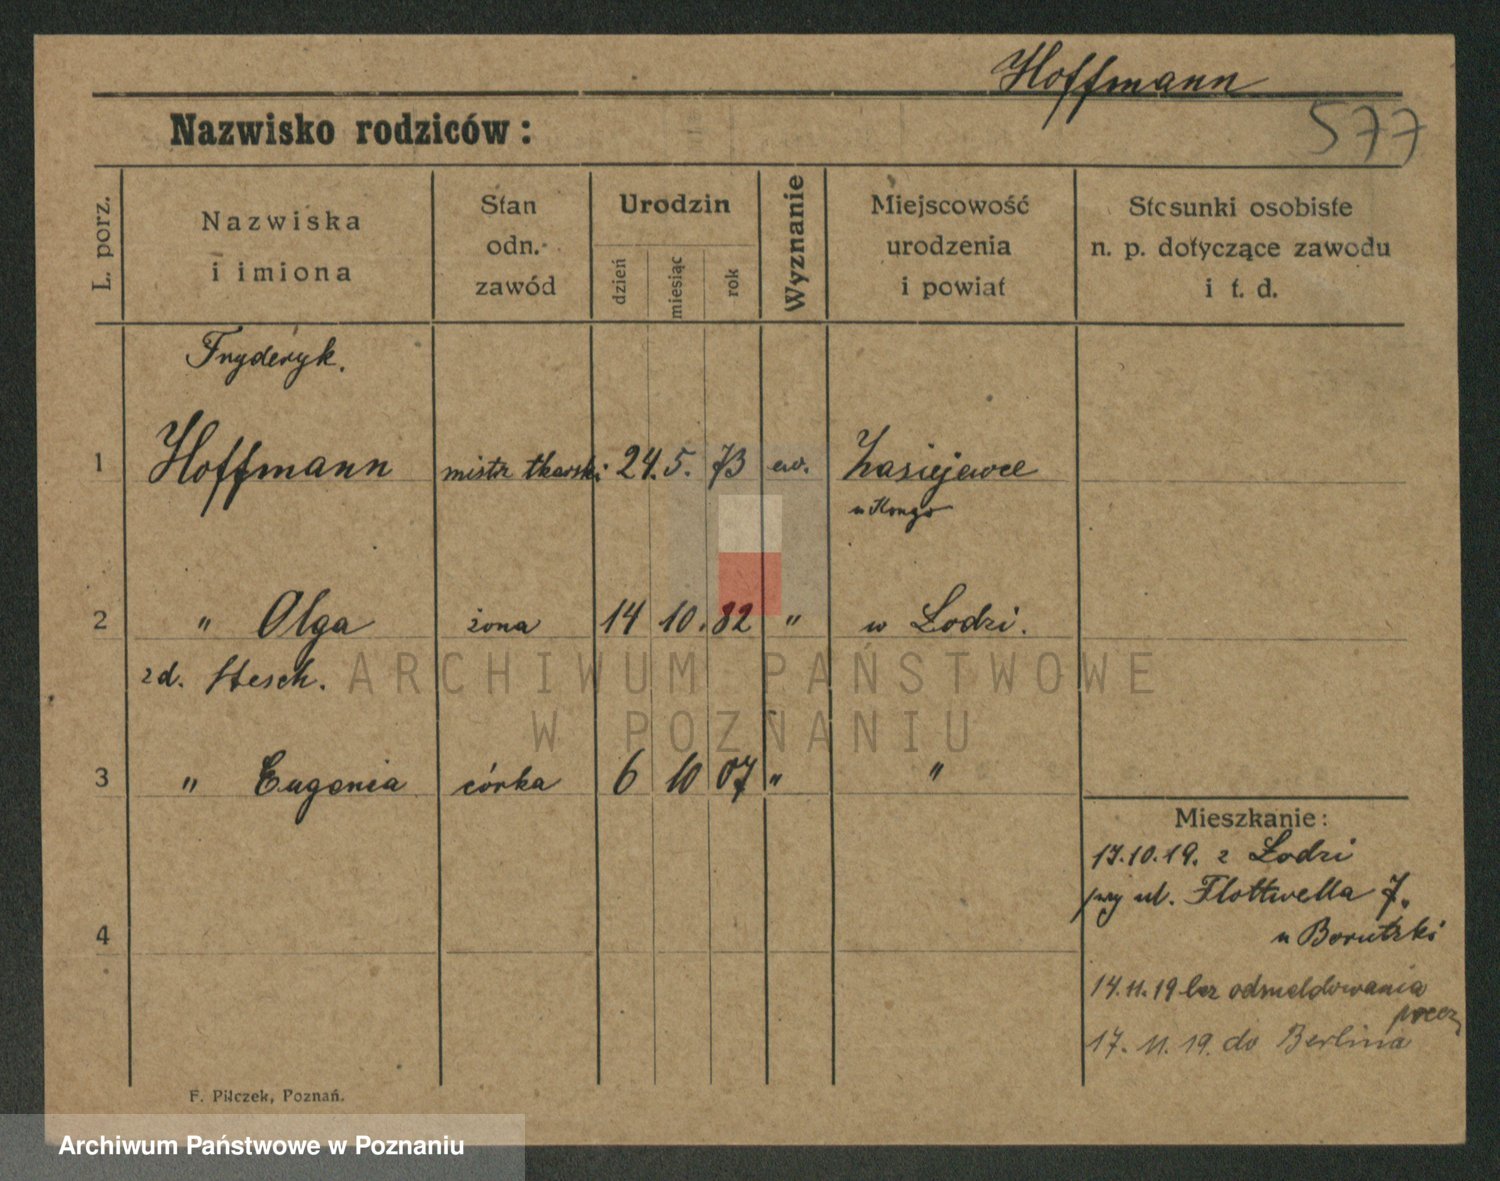 Hoffmann
577
Nazwisko rodziców:
L. porz.
Nazwiska
i imiona
Stan
odn.
zawód
Urodzin
dzień
miesiąc
rok
Wyznanie
Miejscowość
urodzenia
i powiat
Stosunki osobiste
n. p. dotyczące zawodu
i t. d.
Fryderyk.
1 Hoffmann mistrz tkarski 24. 5. 73 ew.
2 " Olga żona 14 10. 82 " w Łodzi.
zd.
3 " Eugenia córka 6 10 07 " "
4
Mieszkanie:
17.10.19. z Łodzi
przy ul. Flottwella 7.
14.11.19 bez odmeldowania
17. 11. 19. do Berlina
F. Pilczek, Poznań.
ARCHIWUM PAŃSTWOWE
W POZNANIU
Archiwum Państwowe w Poznaniu